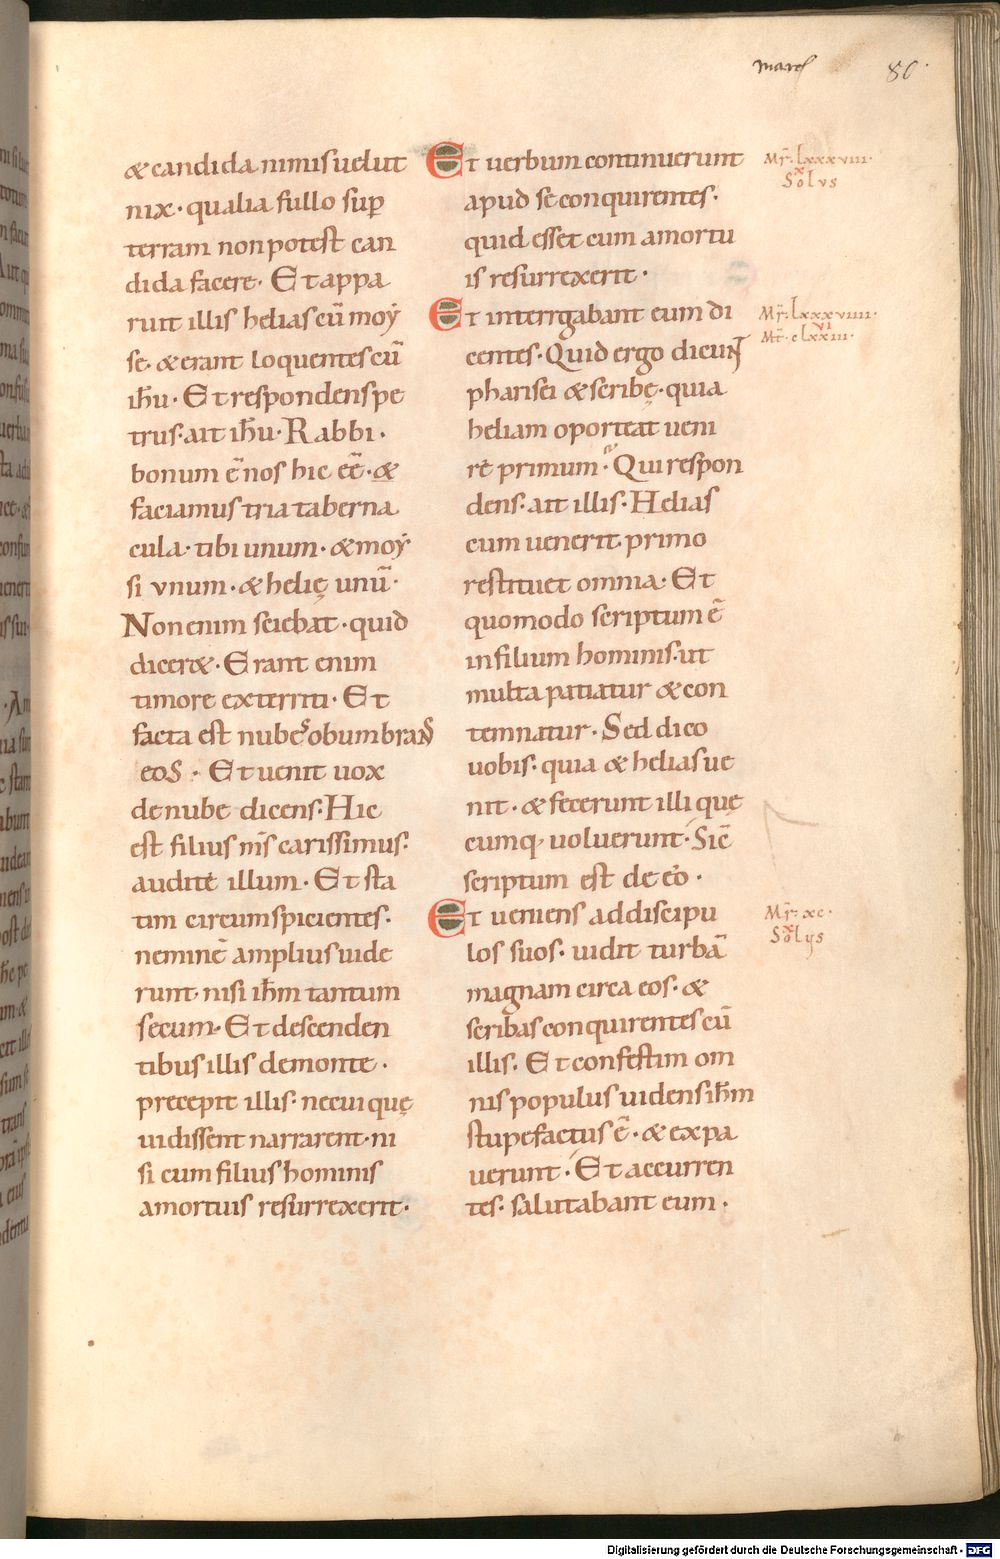 marc
80.
& candida nimis uelut
nix · qualia fullo sup̄
terram non potest can
dida facere · Et appa
ruit illis helias cū moy
se · & erant loquentes cū
ih̄u · Et respondens pe
trus · ait ih̄u · Rabbi ·
bonum ē nos hic eē · &
faciamus tria taberna
cula · tibi unum · & moy
si vnum · & helię unū ·
Non enim sciebat · quid
dicer& · Erant enim
timore exterriti · Et
facta est nubes obumbrans
eos · Et uenit uox
de nube dicens · Hic
est filius m̄s carissimus ·
audite illum · Et sta
tim circumspicientes ·
neminē amplius uide
runt · nisi ih̄m tantum
secum · Et descenden
tibus illis de monte ·
precepit illis · ne cui quę
uidissent narrarent · ni
si cum filius hominis
a mortuis resurrexerit ·
Et uerbum continuerunt
apud se conquirentes ·
quid esset cum a mortu
is resurrexerit ·
Et interrgabant eum di
centes · Quid ergo dicunt
pharisei & scribę · quia
heliam oporteat ueni
re primum · Qui respon
dens · ait illis · Helias
cum uenerit primo
restituet omnia · Et
quomodo scriptum ē
in filium hominis · ut
multa patiatur & con
temnatur · Sed dico
uobis · quia & helias ue
nit · & fecerunt illi quę
cumq· uoluerunt · Sic̄
scriptum est de eo ·
Et ueniens ad discipu
los suos · uidit turbā
magnam circa eos · &
scribas conquirentes cū
illis · Et confestim om
nis populus uidens ih̄m
stupefactus ē · & expa
uerunt · Et accurren
tes · salutabant eum ·
Mr̄ · lxxxviii ·
x
Solvs
Mr̄ · lxxxviiii ·
vi
Mt̄ · clxxiii ·
Mr̄ · xc ·
x
Solys
Digitalisierung gefördert durch die Deutsche Forschungsgemeinschaft - DFG